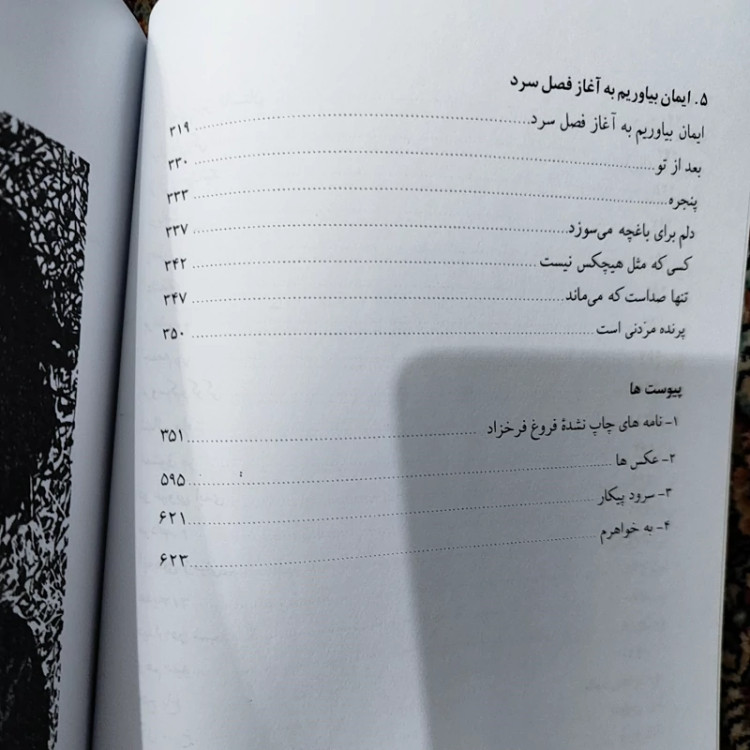 ۵. ایمان بیاوریم به آغاز فصل سرد
ایمان بیاوریم به آغاز فصل سرد ........ ۳۱۹
بعد از تو ........ ۳۳۰
پنجره ........ ۳۳۳
دلم برای باغچه می‌سوزد ........ ۳۳۷
کسی‌که مثل هیچکس نیست ........ ۳۴۲
تنها صداست‌که می‌ماند ........ ۳۴۷
پرنده مردنی است ........ ۳۵۰
پیوست ها
۱- نامه های چاپ نشدۀ فروغ فرخزاد ........ ۳۵۱
۲- عکس ها ........ ۵۹۵
۳- سرود پیکار ........ ۶۲۱
۴- به خواهرم ........ ۶۲۳